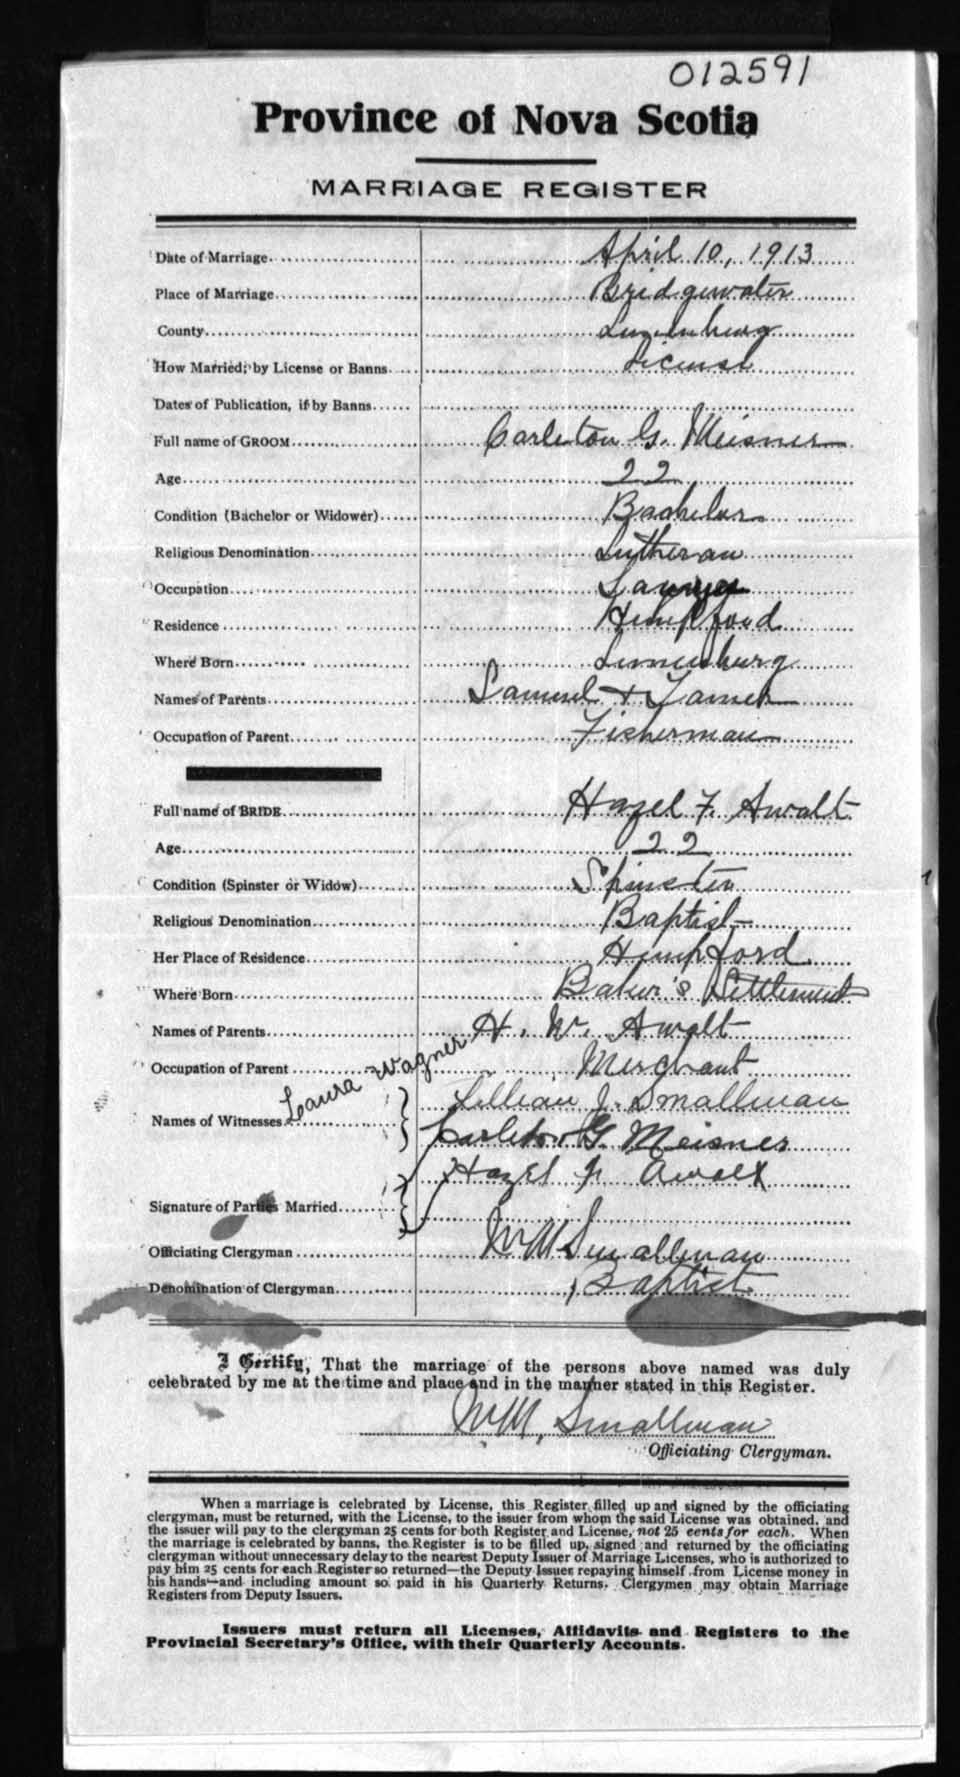 012591
Province of Nova Scotia
MARRIAGE REGISTER
Date of Marriage April 10, 1913
Place of Marriage Bridgewater
County Lunenburg
How Married; by License or Banns License
Dates of Publication, if by Banns
Full name of GROOM Carleton G. Meisner
Age 22
Condition (Bachelor or Widower) Bachelor
Religious Denomination Lutheran
Occupation
Residence Hempford
Where Born Lunenburg
Names of Parents Samuel +
Occupation of Parent Fisherman
Full name of BRIDE Hazel F. Awalt
Age 22
Condition (Spinster or Widow) Spinster
Religious Denomination Baptist
Her Place of Residence Hempford
Where Born Baker's Settlement
Names of Parents H. W. Awalt
Occupation of Parent Merchant
Laura Wagner
Names of Witnesses Lillian J. Smallman
Carleton G. Meisner
Hazel F Awalt
Signature of Parties Married
Officiating Clergyman WM Smallman
Denomination of Clergyman Baptist
I Certify, That the marriage of the persons above named was duly
celebrated by me at the time and place and in the manner stated in this Register.
WM. Smallman
Officiating Clergyman.
When a marriage is celebrated by License, this Register filled up and signed by the officiating
clergyman, must be returned, with the License, to the issuer from whom the said License was obtained, and
the issuer will pay to the clergyman 25 cents for both Register and License, not 25 cents for each. When
the marriage is celebrated by banns, the Register is to be filled up, signed and returned by the officiating
clergyman without unnecessary delay to the nearest Deputy Issuer of Marriage Licenses, who is authorized to
pay him 25 cents for each Register so returned—the Deputy Issuer repaying himself from License money in
his hands—and including amount so paid in his Quarterly Returns. Clergymen may obtain Marriage
Registers from Deputy Issuers.
Issuers must return all Licenses, Affidavits and Registers to the
Provincial Secretary's Office, with their Quarterly Accounts.